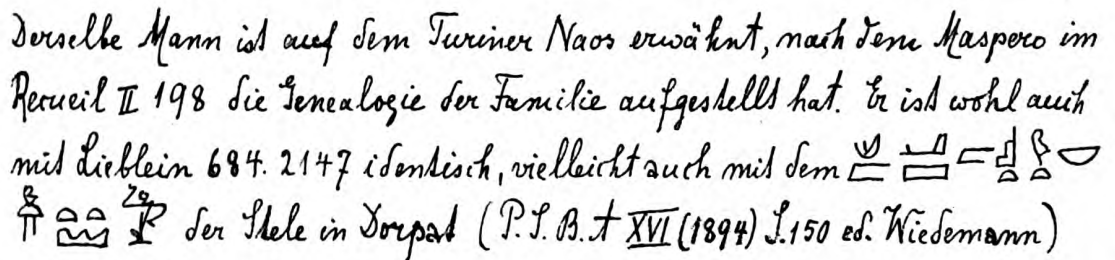 Derselbe Mann ist auf dem Turiner Naos erwähnt, nach dem Maspero im
Recueil II 198 die Genealogie der Familie aufgestellt hat. Er ist wohl auch
mit Lieblein 684. 2147 identisch, vielleicht auch mit dem
der Stele in Dorpat (P. S. B. A XVI (1894) S. 150 ed. Wiedemann)